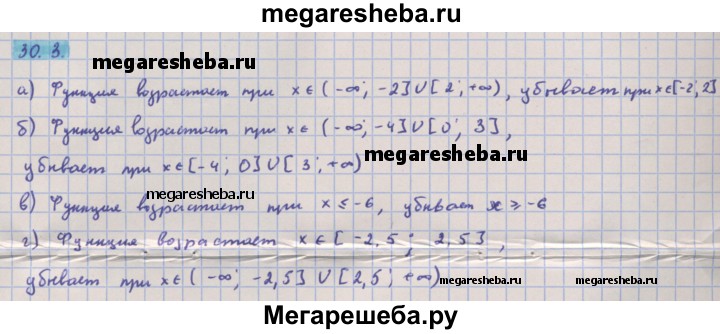 megaresheba.ru
30.3.
megaresheba.ru
а) Функция возрастает при x ∈ (-∞; -2] U [2; +∞), убывает при x ∈ [-2; 2]
б) Функция возрастает при x ∈ (-∞; -4] U [0; 3],
убывает при x ∈ [-4; 0] U [3; +∞)
megaresheba.ru
megaresheba.ru
в) Функция возрастает при x ≤ -6, убывает x ≥ -6
г) Функция возрастает x ∈ [-2,5; 2,5],
убывает при x ∈ (-∞; -2,5] U [2,5; +∞)
megaresheba.ru
megaresheba.ru
Мегарешеба.ру